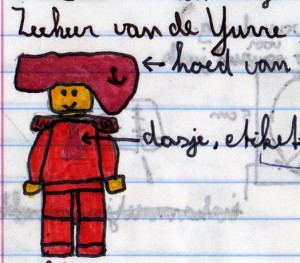 Zeeheer van de Yurre
← hoed van
← dasje, etiket